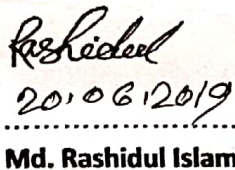 Rashidul
20.06.2019
Md. Rashidul Islam